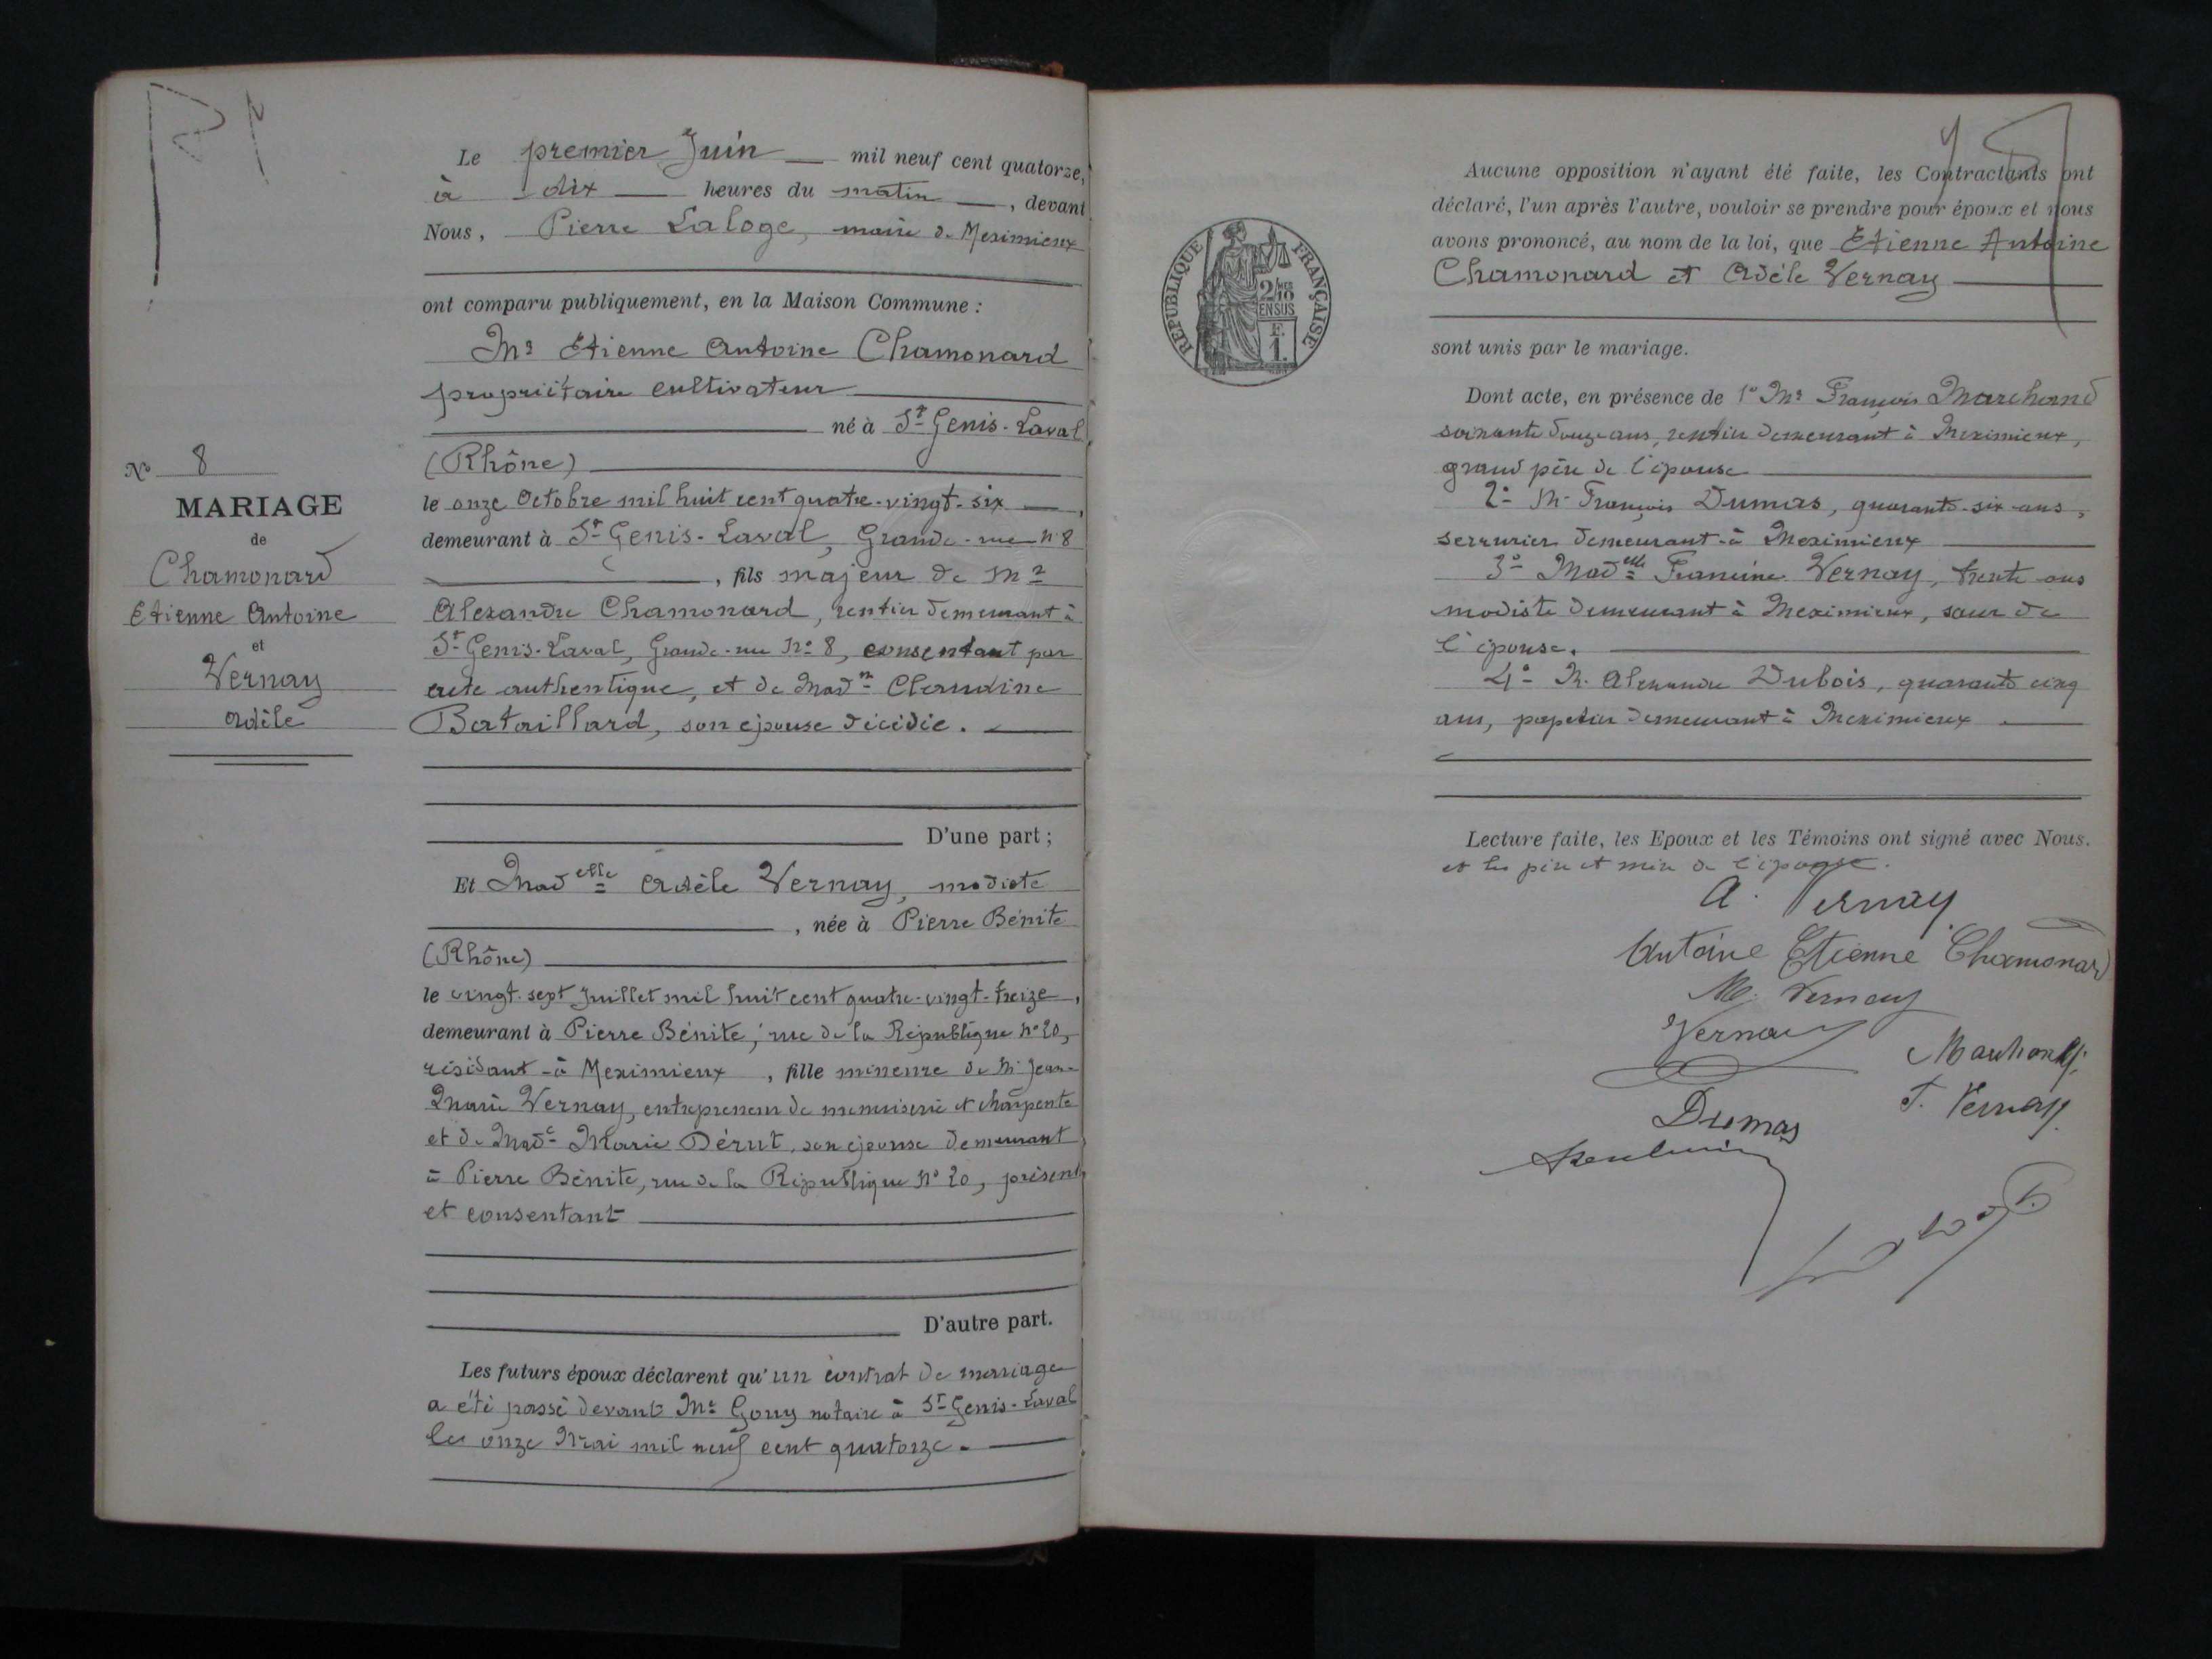 Le premier Juin mil neuf cent quatorze,
à dix heures du matin, devant
Nous, Pierre Laloge, maire de Meximieux
ont comparu publiquement, en la Maison Commune :
Mr Etienne Antoine Chamonard
propriétaire cultivateur
né à St Genis-Laval
(Rhône)
le onze Octobre mil huit cent quatre-vingt-six,
demeurant à St Genis-Laval, Grande-rue n° 8
, fils majeur de Mr
Alexandre Chamonard, rentier demeurant à
St Genis-Laval, Grande-rue N° 8, consentant par
acte authentique, et de Made Claudine
Bataillard, son épouse décédée.
D'une part ;
N° 8
MARIAGE
de
Chamonard
Etienne Antoine
et
Vernay
Adèle
Et Madelle Adèle Vernay, modiste
, née à Pierre Bénite
(Rhône)
le vingt-sept Juillet mil huit cent quatre-vingt-treize,
demeurant à Pierre Bénite, rue de la République n° 20,
résidant à Meximieux, fille mineure de Mr Jean-
Marie Vernay, entrepreneur de menuiserie et charpente
et de Made Marie Dérut, son épouse demeurant
à Pierre Bénite, rue de la République N° 20, présents
et consentant
D'autre part.
Les futurs époux déclarent qu'un contrat de mariage
a été passé devant Me Gouy notaire à St Genis-Laval
le onze Mai mil neuf cent quatorze.
REPUBLIQUE FRANÇAISE
2/10
EN SUS
F.
1.
Aucune opposition n'ayant été faite, les Contractants ont
déclaré, l'un après l'autre, vouloir se prendre pour époux et nous
avons prononcé, au nom de la loi, que Etienne Antoine
Chamonard et Adèle Vernay
sont unis par le mariage.
Dont acte, en présence de 1° Mr François Marchand
soixante douze ans, rentier demeurant à Meximieux,
grand père de l'épouse
2° Mr François Dumas, quarante-six ans,
serrurier demeurant à Meximieux
3° Madelle Francine Vernay, trente ans
modiste demeurant à Meximieux, sœur de
l'épouse.
4° M. Alexandre Dubois, quarante cinq
ans, papetier demeurant à Meximieux
Lecture faite, les Epoux et les Témoins ont signé avec Nous.
et les père et mère de l'épouse.
A. Vernay
Antoine Etienne Chamonard
M. Vernay
Vernay
Marchand
F. Vernay
Dumas